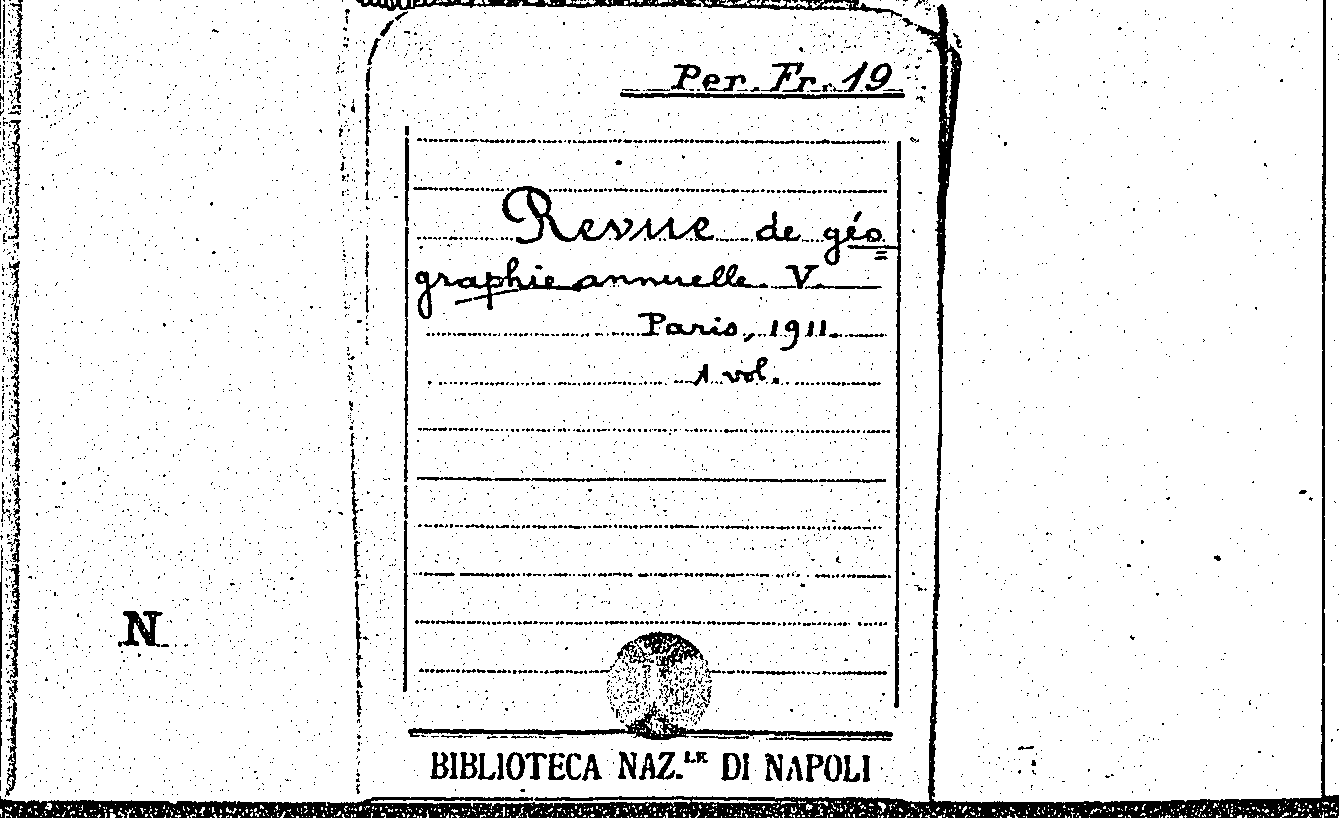 Per. Fr. 19
Revue de géo=
graphie annuelle. V.
Paris, 1911.
1 vol.
N
BIBLIOTECA NAZ.LE DI NAPOLI